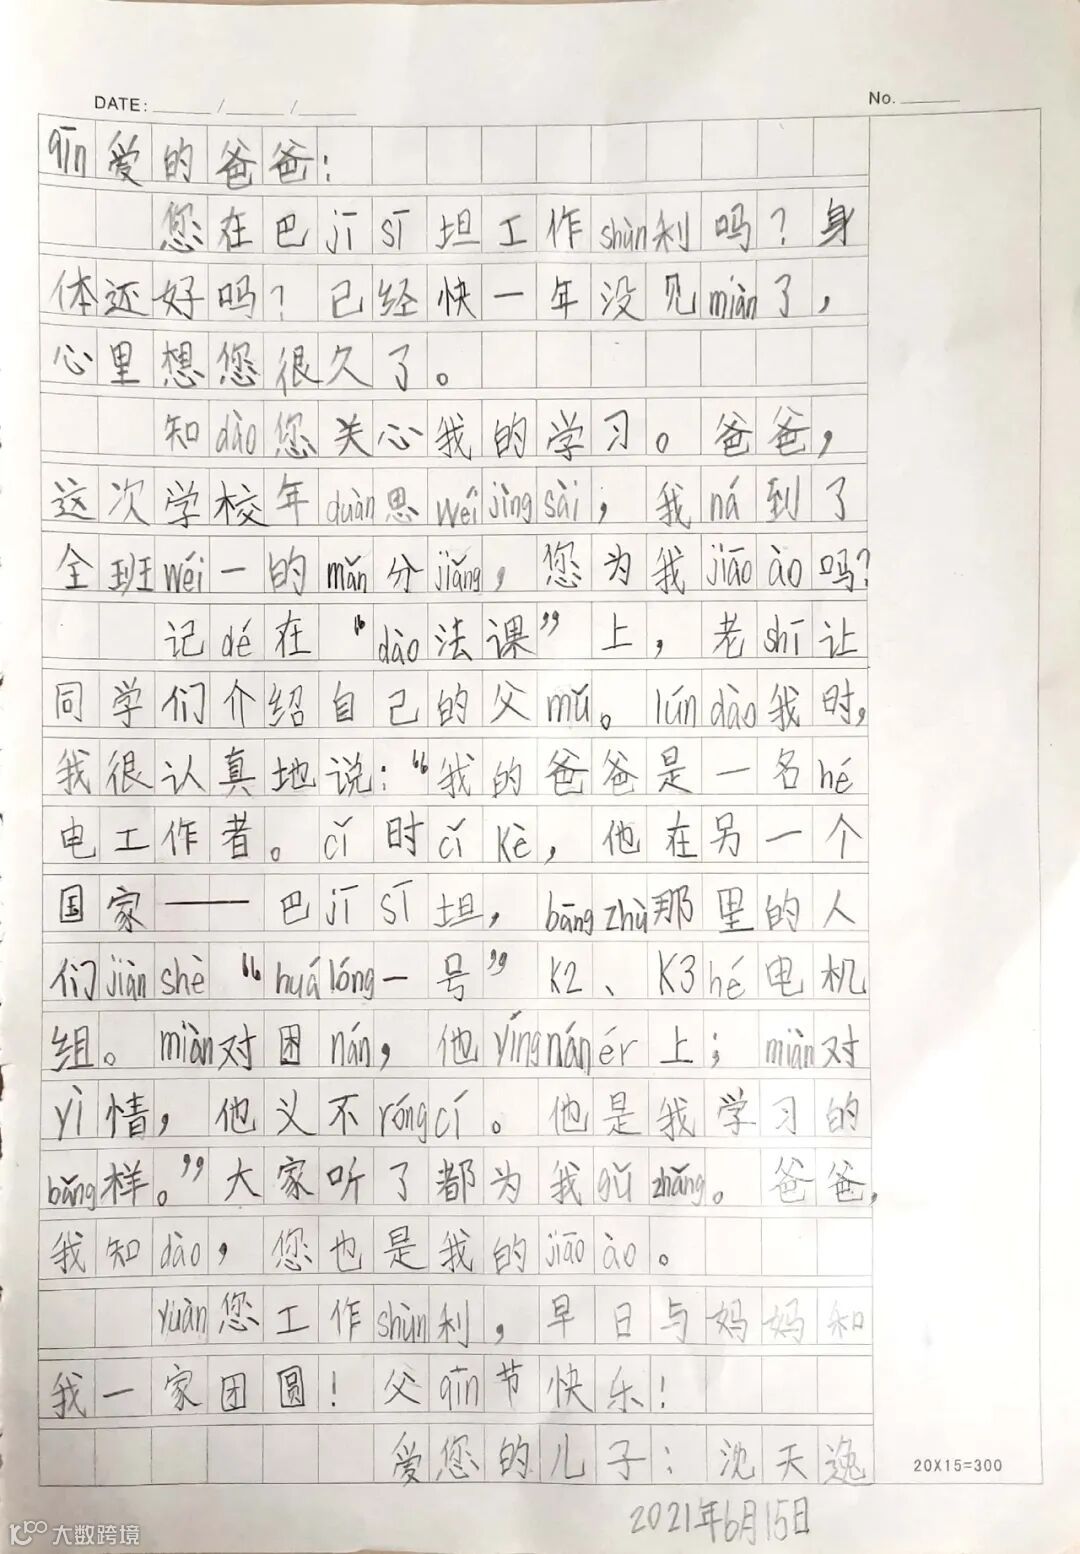 DATE: ____/____/____
No. ____
qīn爱的爸爸：
您在巴jī sī坦工作shùn利吗？身
体还好吗？已经快一年没见miàn了，
心里想您很久了。
知dào您关心我的学习。爸爸，
这次学校年duàn思wéi jìng sài，我ná到了
全班wéi一的mǎn分jiǎng，您为我jiāo ào吗？
记dé在“dào法课”上，老shī让
同学们介绍自己的父mǔ。lún dào我时，
我很认真地说：“我的爸爸是一名hé
电工作者。cǐ时cǐ kè，他在另一个
国家——巴jī sī坦，bāng zhù那里的人
们jiàn shè“huá lóng一号”K2、K3hé电机
组。miàn对困nán，他yíng nán ér上；miàn对
yì情，他义不róng cí。他是我学习的
bǎng样。”大家听了都为我gǔ zhǎng。爸爸，
我知dào，您也是我的jiāo ào。
yuàn您工作shùn利，早日与妈妈和
我一家团圆！父qīn节快乐！
爱您的儿子：沈天逸
20X15=300
2021年6月15日
大数跨境